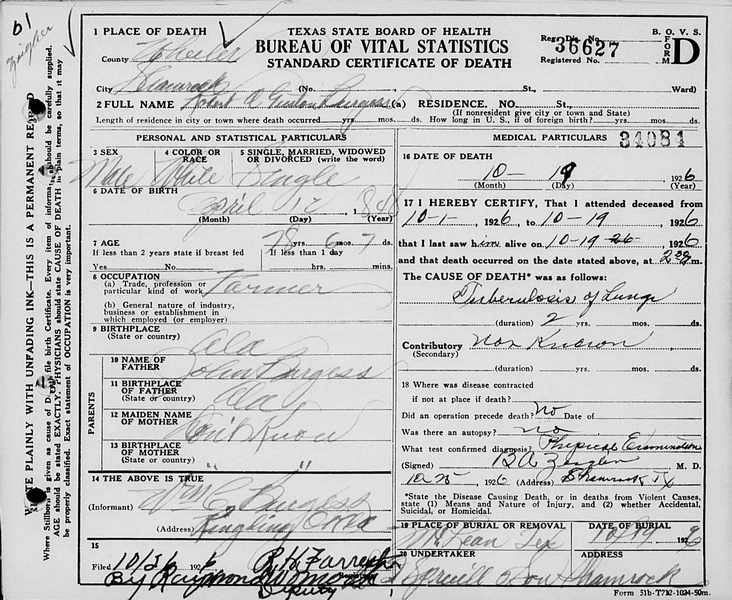 b1
Zeigler
WRITE PLAINLY WITH UNFADING INK—THIS IS A PERMANENT RECORD
Where Stillborn is given as cause of D. file birth Certificate. Every item of information should be carefully supplied.
AGE should be stated EXACTLY. PHYSICIANS should state CAUSE OF DEATH in plain terms, so that it may
be properly classified. Exact statement of OCCUPATION is very important.
TEXAS STATE BOARD OF HEALTH
BUREAU OF VITAL STATISTICS
STANDARD CERTIFICATE OF DEATH
B. O. V. S.
FORM D
Reg. Dis. No.
36627
Registered No.
1 PLACE OF DEATH
County Wheeler
City Shamrock (No. St., Ward)
2 FULL NAME Robert A Burgess (a) RESIDENCE. NO. St.,
(If nonresident give city or town and State)
Length of residence in city or town where death occurred yrs. mos. ds. How long in U. S., if of foreign birth? yrs. mos. ds.
PERSONAL AND STATISTICAL PARTICULARS
3 SEX Male
4 COLOR OR RACE White
5 SINGLE, MARRIED, WIDOWED OR DIVORCED (write the word) Single
6 DATE OF BIRTH
April 12 1848
(Month) (Day) (Year)
7 AGE 78 yrs. 6 mos. 7 ds.
If less than 2 years state if breast fed If less than 1 day
Yes No hrs. mins.
8 OCCUPATION
(a) Trade, profession or particular kind of work Farmer
(b) General nature of industry, business or establishment in which employed (or employer)
9 BIRTHPLACE (State or country) Ala
PARENTS
10 NAME OF FATHER John Burgess
11 BIRTHPLACE OF FATHER (State or country) Ala
12 MAIDEN NAME OF MOTHER Don't Know
13 BIRTHPLACE OF MOTHER (State or country) " "
14 THE ABOVE IS TRUE
(Informant) Wm C Burgess
(Address) Ringling Okla
15
Filed 10/26 1926 R. H. Farren
By Raymond W Deputy
MEDICAL PARTICULARS
34084
16 DATE OF DEATH
10 - 19 1926
(Month) (Day) (Year)
17 I HEREBY CERTIFY, That I attended deceased from
10-1- 1926, to 10-19 1926
that I last saw him alive on 10-19-26- 1926
and that death occurred on the date stated above, at m.
The CAUSE OF DEATH* was as follows:
Tuberculosis of Lungs
(duration) 2 yrs. mos. ds.
Contributory Non Known
(Secondary)
(duration) yrs. mos. ds.
18 Where was disease contracted
if not at place of death?
Did an operation precede death? No Date of
Was there an autopsy? no
What test confirmed diagnosis? Physical Examination
(Signed) B A Zeigler M. D.
10-25 1926 (Address) Shamrock Tx
*State the Disease Causing Death, or in deaths from Violent Causes,
state (1) Means and Nature of Injury, and (2) whether Accidental,
Suicidal, or Homicidal.
19 PLACE OF BURIAL OR REMOVAL
McLean Tex 10/19 1926
20 UNDERTAKER ADDRESS
Spruill & Son Shamrock
Form 51b-T712-1024-50m.